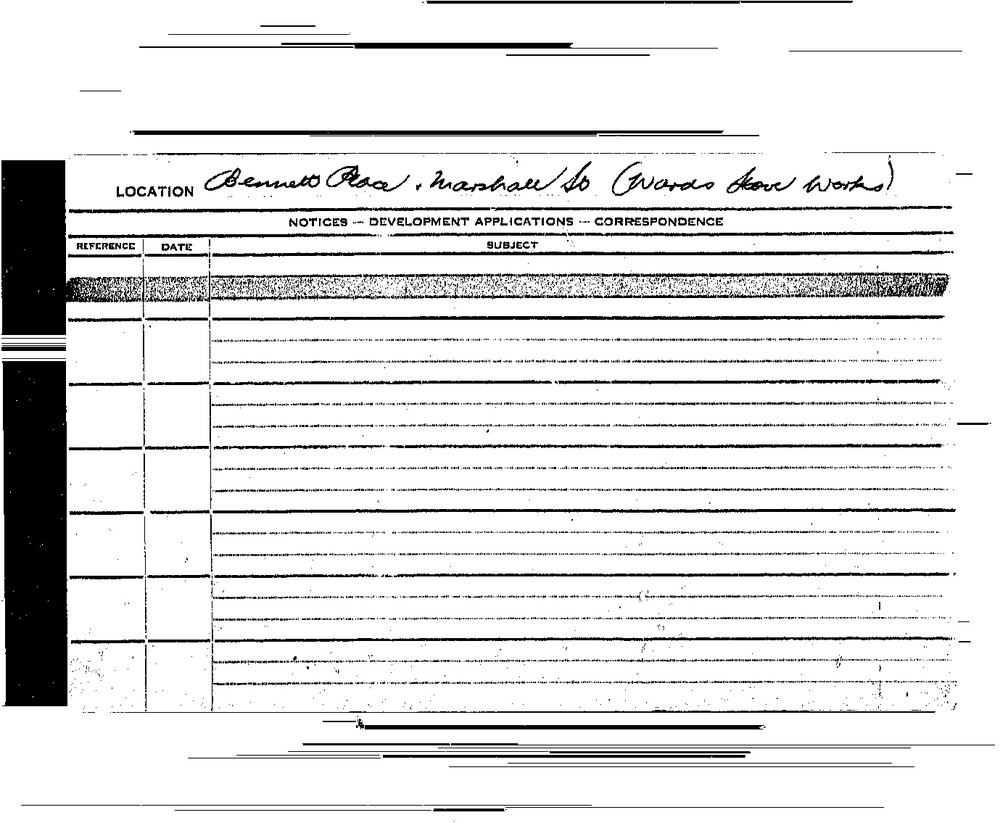 LOCATION Bennett Place, Marshall St (Wards Stove Works)
NOTICES — DEVELOPMENT APPLICATIONS — CORRESPONDENCE
REFERENCE DATE SUBJECT